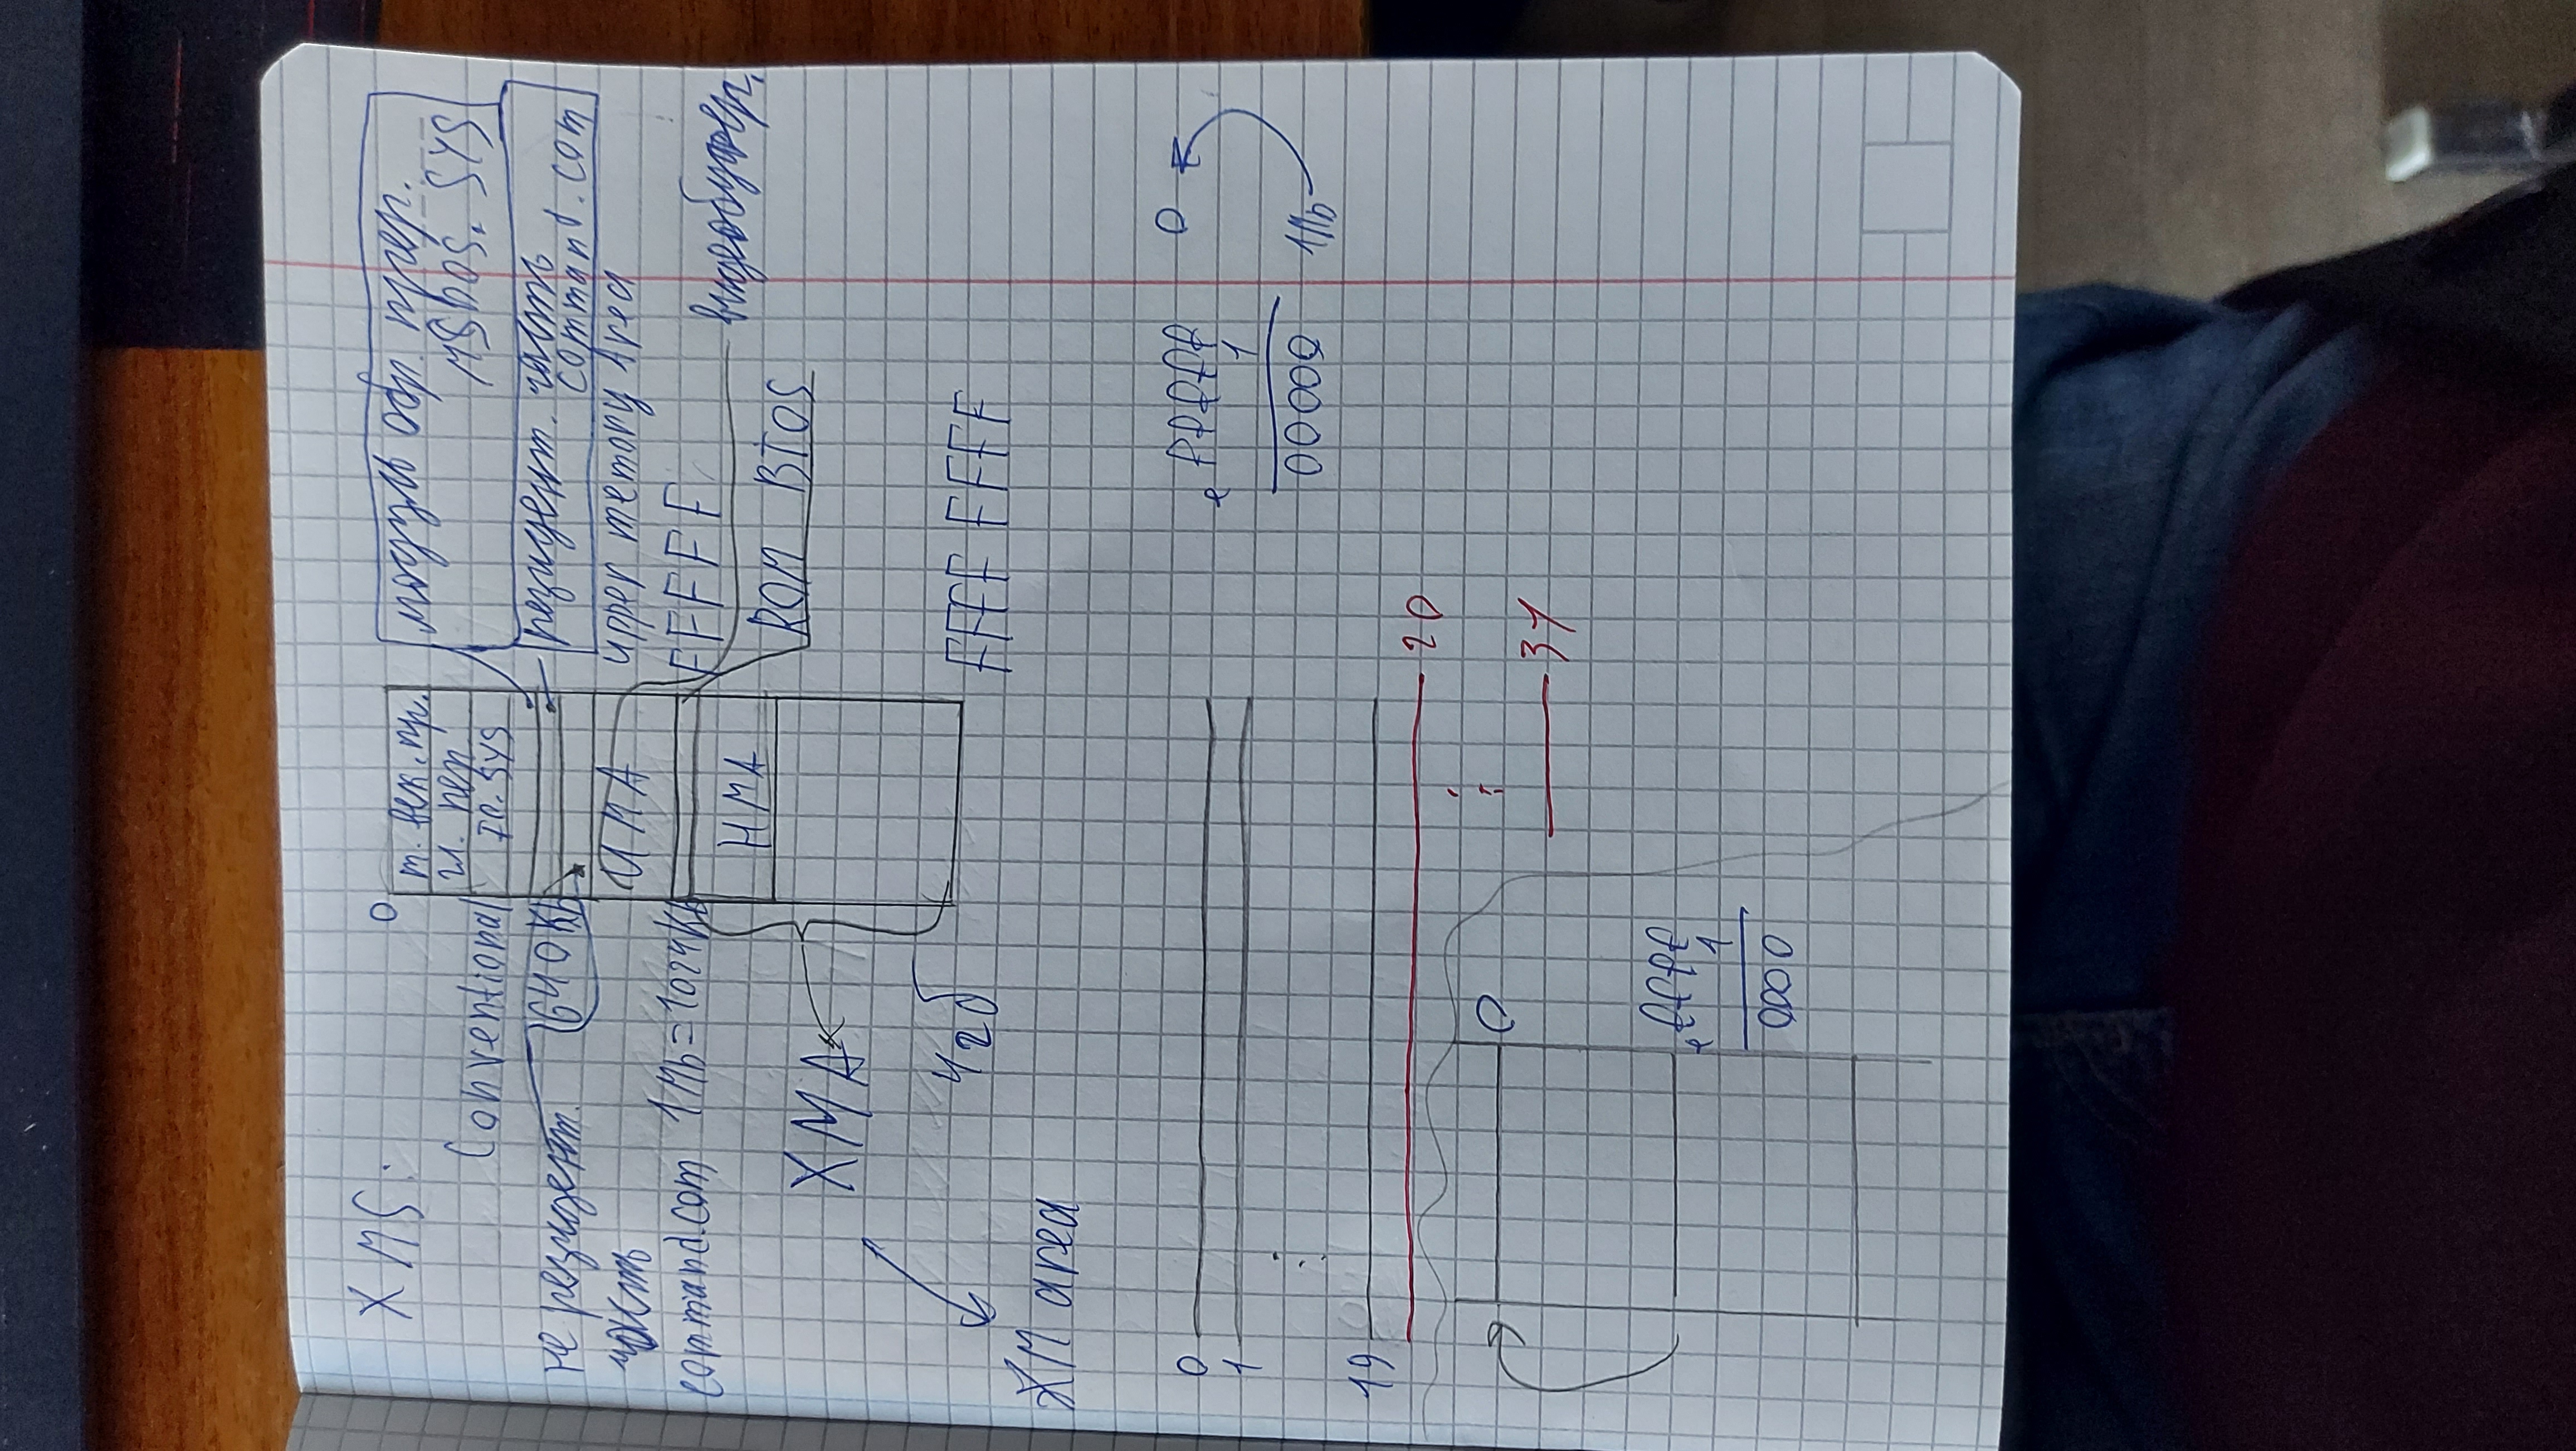 XMS.
0
т. век. пр.
гл. пер
IO.SYS
модуль обр. прер.
MSDOS. SYS
Conventional
640 Kb
резидент. часть
command.com
не резидент.
часть
command.com
UMA
upper memory Area
1Mb=1024Kb
FFFFF
видеобуфер.
HMA
ROM BIOS
XMA
4гб
FFFF FFFF
XM area
0
1
⋮
19
20
⋮
31
+ fffff
1
00000
0
1Mb
0
+ ffff
1
0000